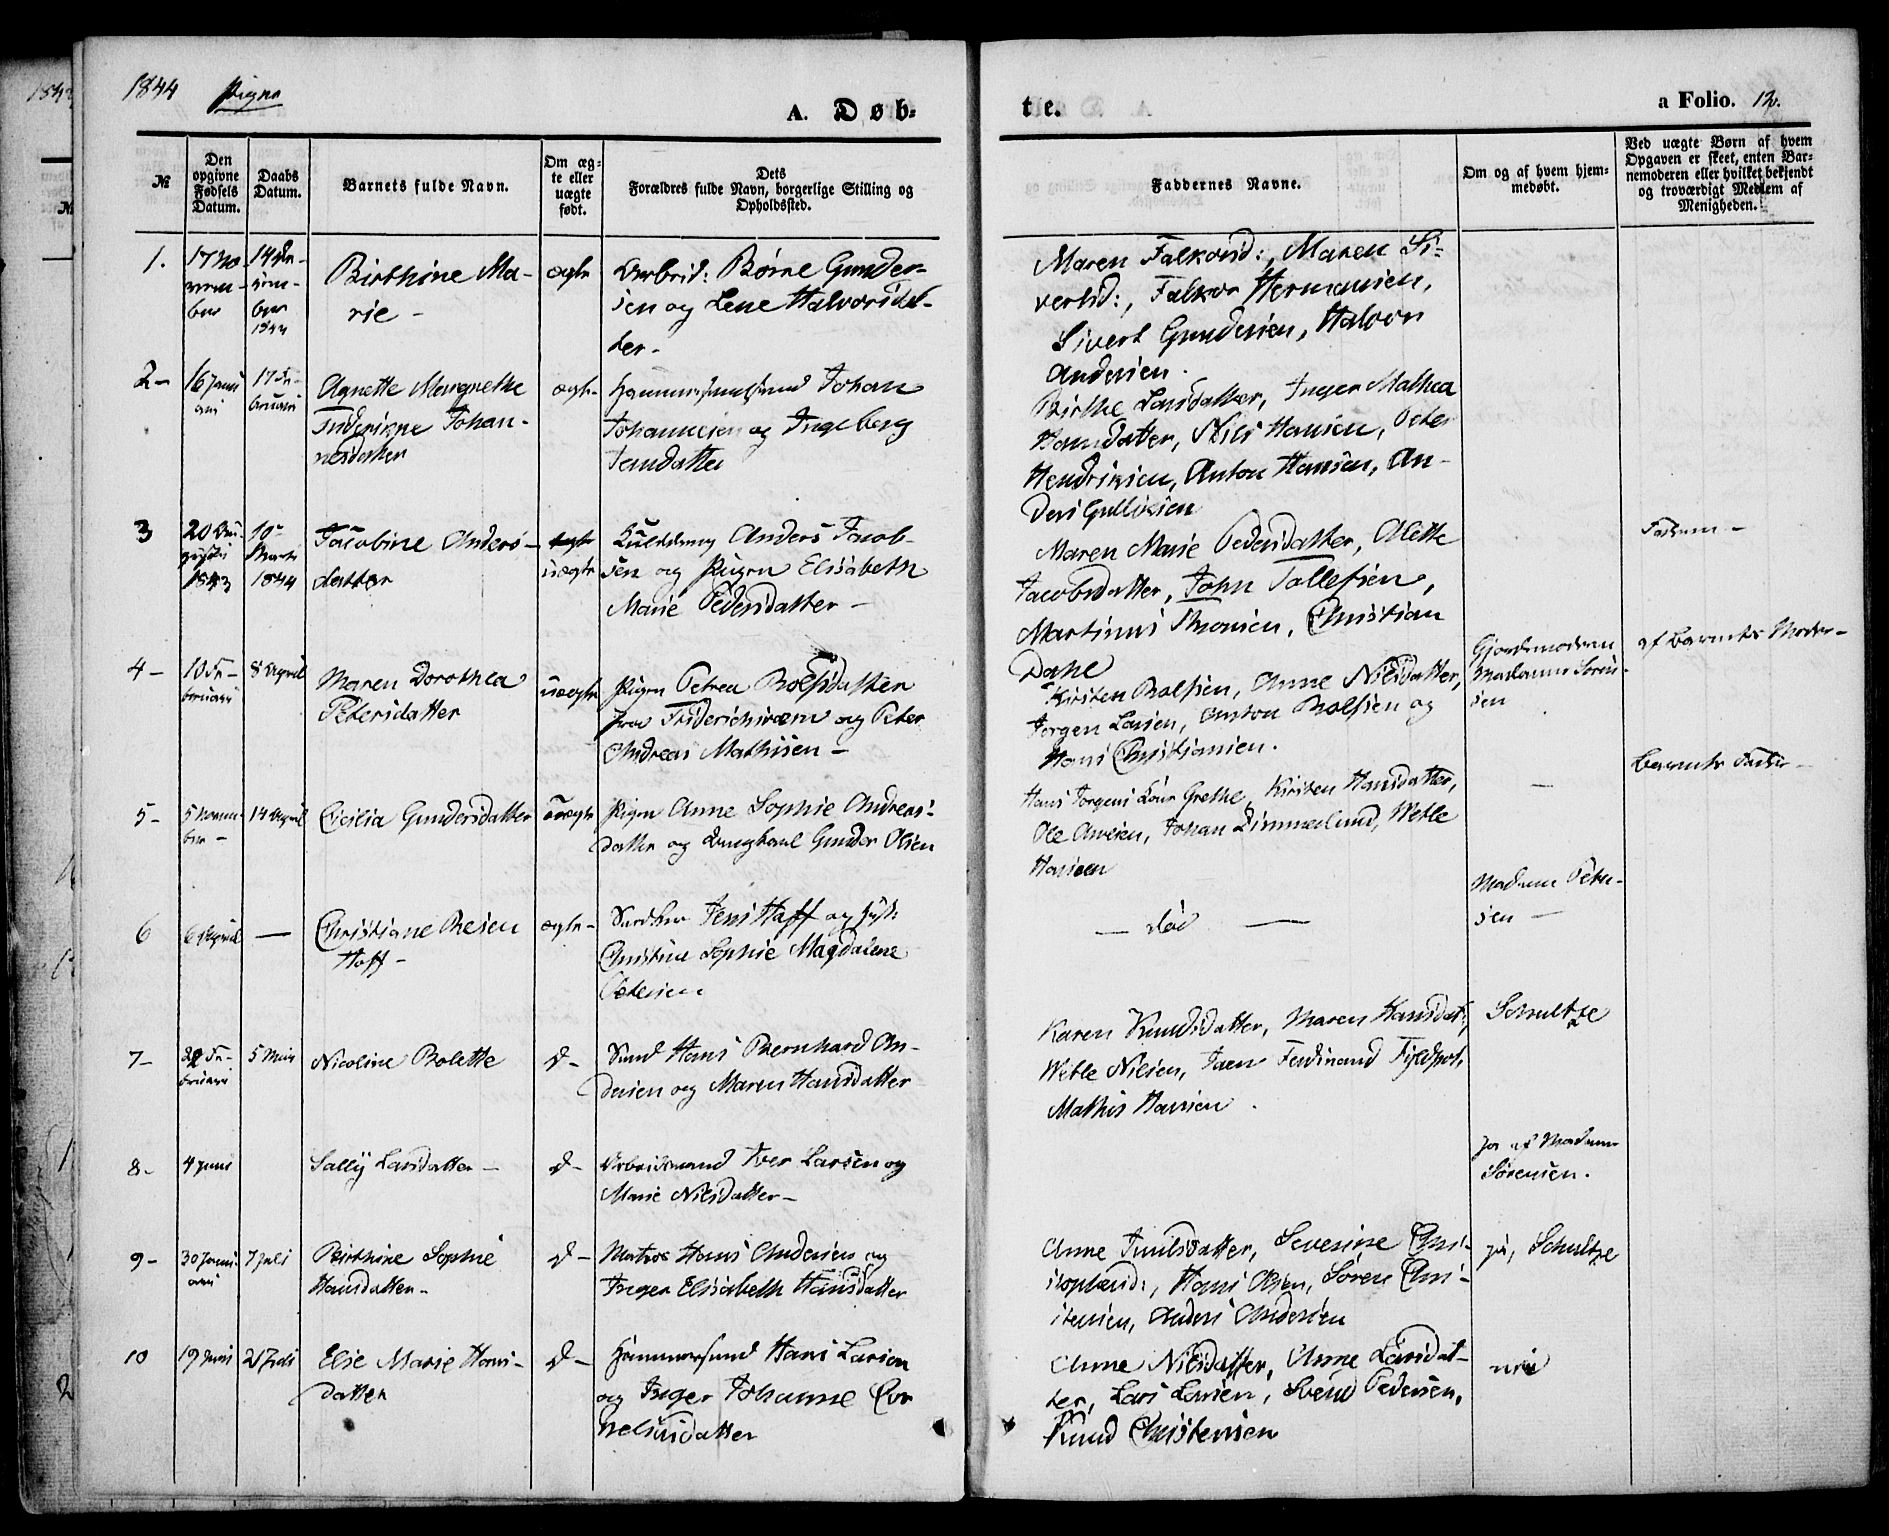 1844 Piger
A. Døb-
te.
a Folio. 12.
№
Den opgivne Fødsels Datum.
Daabs Datum.
Barnets fulde Navn.
Om ægte eller uægte født.
Dets
Forældres fulde Navn, borgerlige Stilling og
Opholdssted.
Faddernes Navne.
Om og af hvem hjem-
medøbt.
Ved uægte Børn af hvem
Opgaven er skeet, enten Bar-
nemoderen eller hvilket bekjendt
og troværdigt Medlem af
Menigheden.
1.
17 No
vem-
ber
14 De-
cem-
ber
1844
Birthine Ma-
rie -
ægte
Arbeid: Børne Gunder-
sen og Lene Halvorsdat-
ter-
Maren Falkorsd:, Maren Si-
vertsd:, Falkor Hermansen,
Sivert Gundersen, Halvor
Andersen.
2-
16 Janu
ari
17 Fe-
bruari
Agnette Margrethe
Friderikne Johan-
nesdatter
ægte-
Hammersmedsvend Johan
Johannesen og Ingeborg
Jensdatter
Birthe Larsdatter, Inger Mathea
Hansdatter, Nils Hansen, Peter
Hendriksen, Anton Hansen, An-
ders Gulliksen
3
20 Au-
gusti
1843
10
Marts
1844
Jacobine Anders-
datter
ægte
uægte
Anders Jacob-
sen og Pigen Elisabeth
Marie Pedersdatter -
Maren Marie Pedersdatter, Alette
Jacobsdatter, John Tollefsen,
Martinus Thronsen, Christian
Dahl
Faderen -
4-
10 Fe-
bruari
8 April
Maren Dorothea
Petersdatter
uægte
Pigen Petrea Rolfsdatter
fra Friderichsværn og Peter
Andreas Mathisen -
Kirsten Rolfsen, Anne Nilsdatter,
Jørgen Larsen, Anton Rolfsen og
Hans Christiansen.
Gjordemoderen
Madame Søren-
sen
af Barnets Moder-
5-
5 Novem-
ber -
14 April
Cicilia Gundersdatter
uægte
Pigen Anne Sophie Andreas-
datter og Ungkarl Gunder Olsen
Hans Jørgens Kone Grethe, Kirsten Hansdatter,
Ole Avelsen, Johan Zimmerlund, Wetle
Hansen
-
Barnets Fader -
6
6 April
-
Christiane Resen
Hoff -
ægte-
Jens Hoff og Hust:
Christine Sophie Magdalene
Petersen
- død -
Madame Peter-
sen -
7-
22 Fe-
bruari
5 Mai
Nicoline Rolette
d-
Smed Hans Bernhard An-
dersen og Maren Hansdatter
Karen Knudsdatter, Maren Hansdat:,
Wetle Nilsen, Jaen Ferdinand Fyldpot,
Mathis Hansen.
Schultze
8-
4 Juni
Sally Larsdatter -
d-
Arbeidsmand Iver Larsen og
Marie Nilsdatter -
Ja af Madame
Sørensen.
9-
30 Janu-
ari
7 Juli
Birthine Sophie
Hansdatter-
d-
Matros Hans Andersen og
Inger Elisabeth Hansdatter
Anne Truilsdatter, Severine Chri-
stophersd:, Hans Olsen, Søren Chri-
stensen, Anders Andersen
ja, Schultze
10
19 Juni
21 Juli
Else Marie Hans-
datter
d-
Hammersmed Hans Larsen
og Inger Johanne Cor
neliusdatter
Anne Nilsdatter, Anne Larsdat-
ter, Lars Larsen, Svend Pedersen,
Knud Christensen
nei